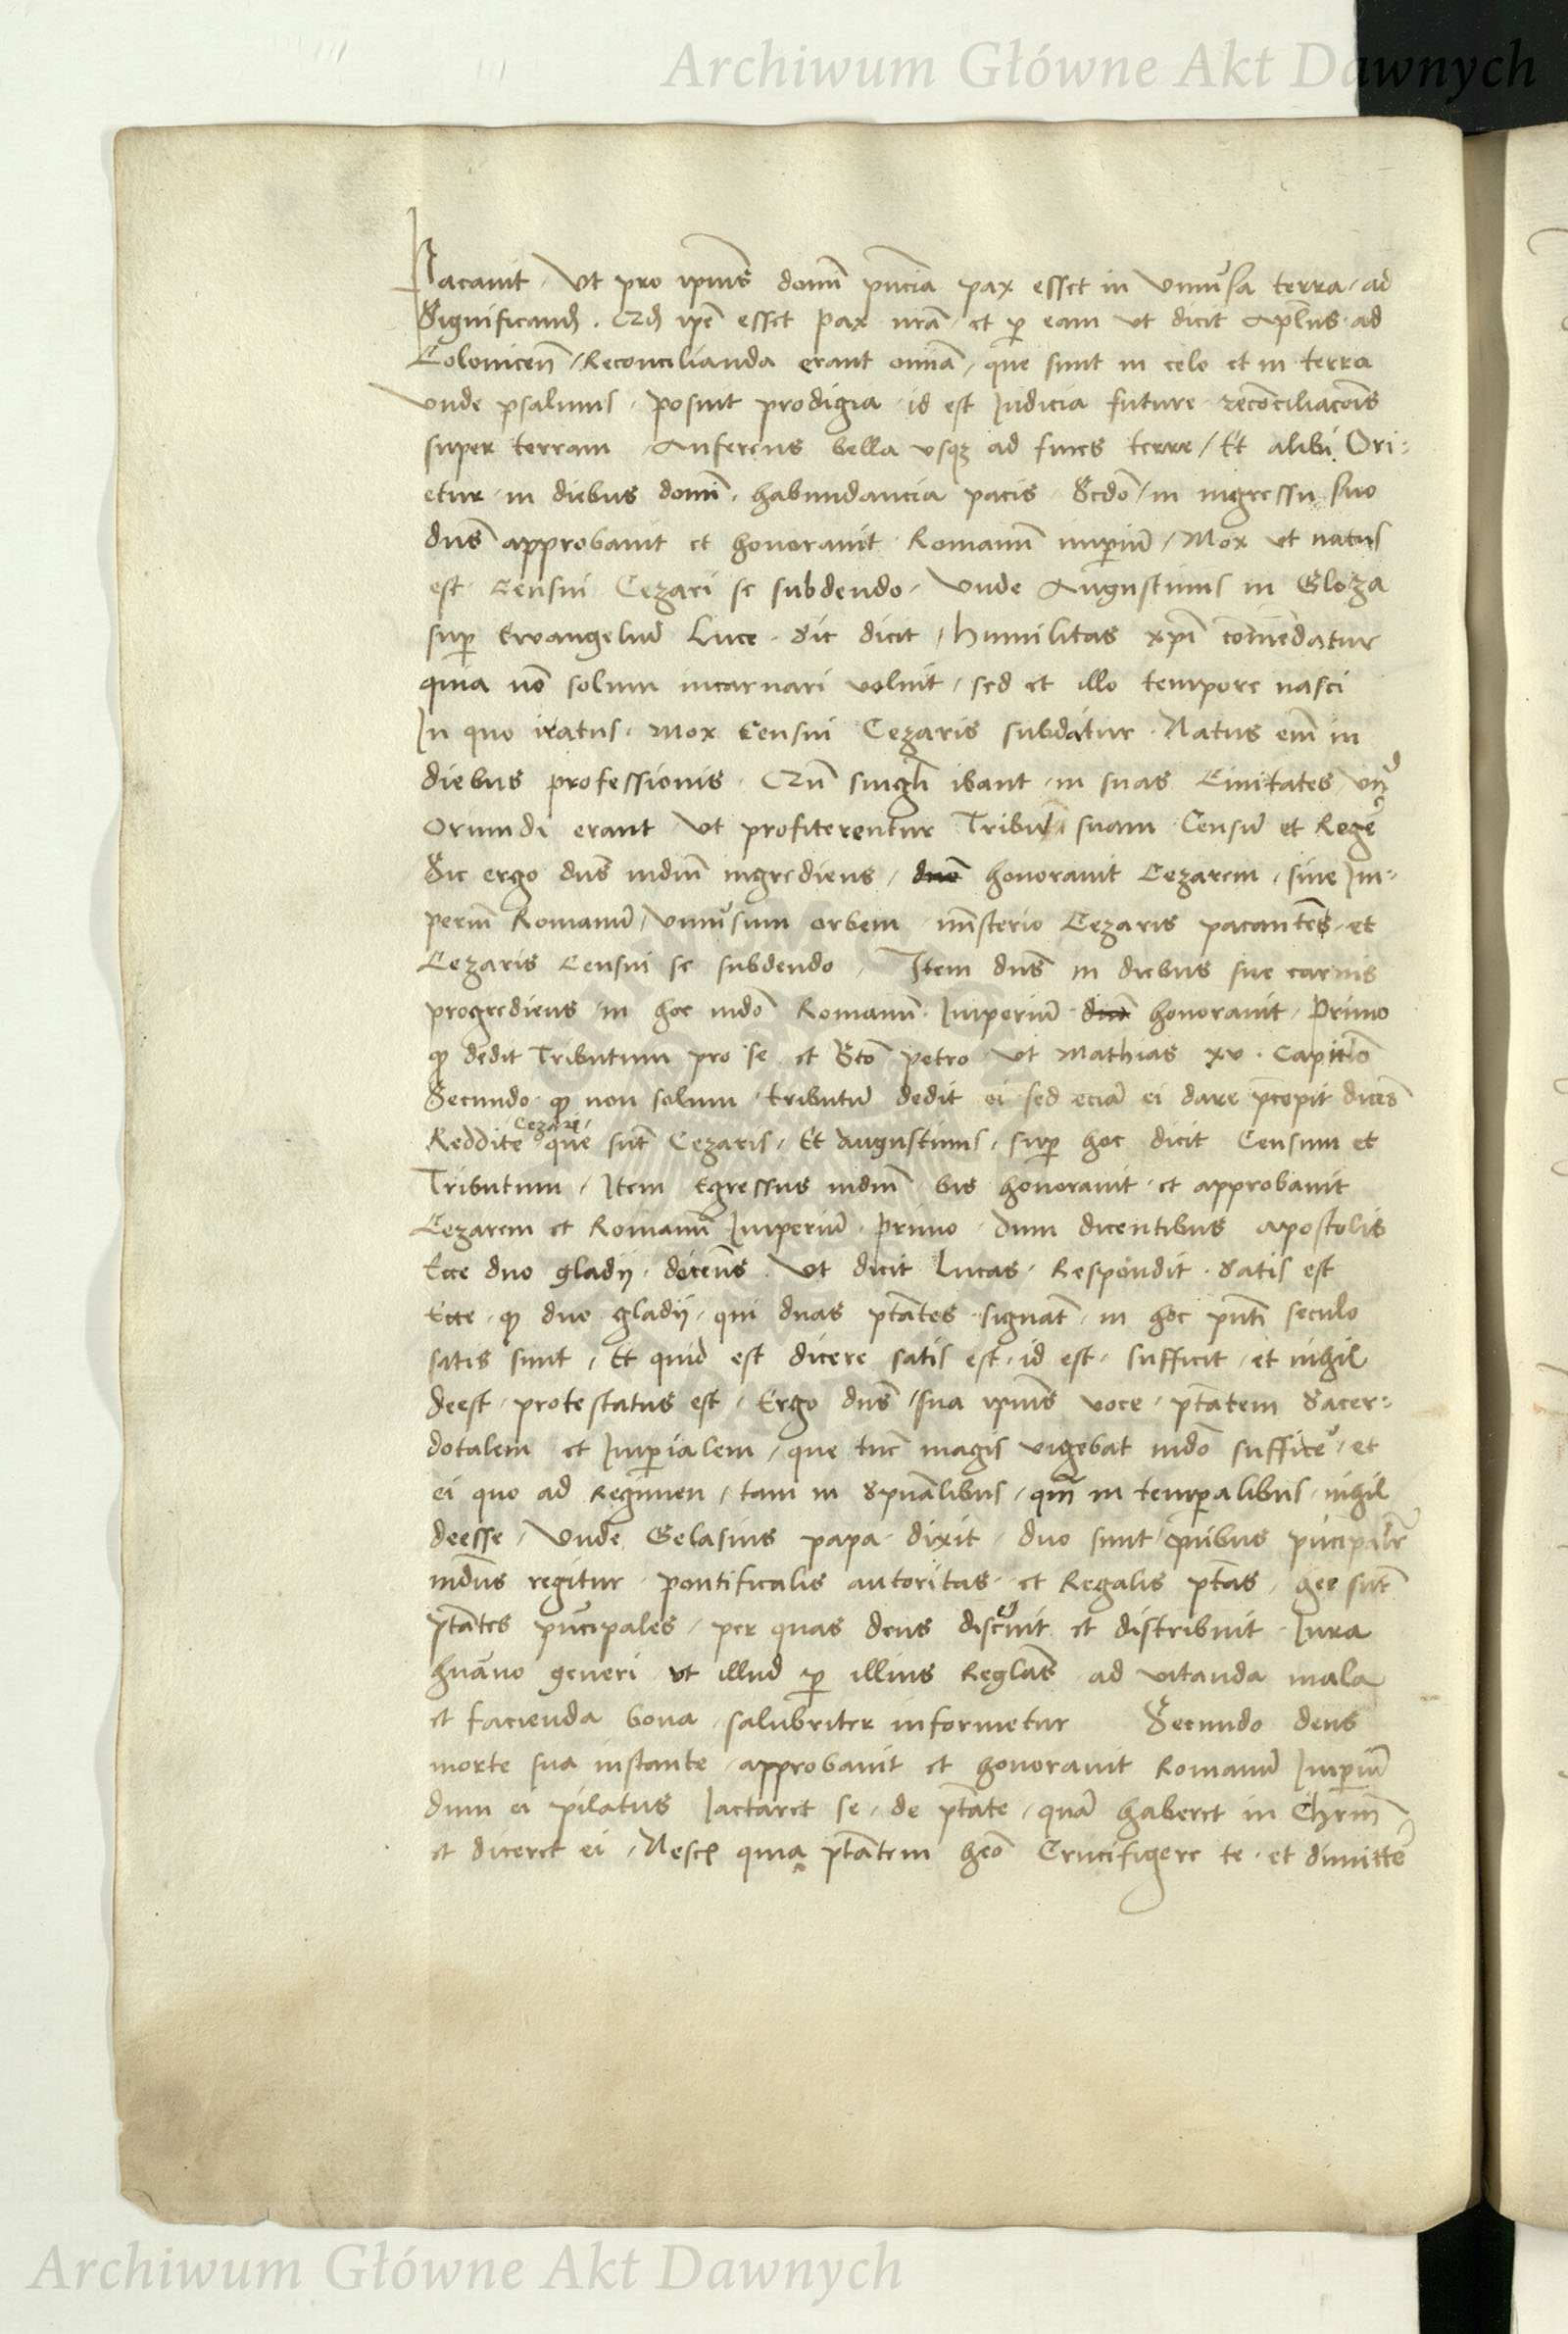 Archiwum Główne Akt Dawnych
Pacauit, Vt pro ipius domi pncia pax esset in vniusa terra, ad
Significand. Qd ipe esset pax nra, et p eam vt dicit Aplus ad
Colonicen, Reconcilianda erant omia, que sunt in celo et in terra
vnde psalmus, posuit prodigia id est Judicia future reconciliacois
super terram, Auferens bella vsqz ad fines terre, Et alibi Ori-
etur in diebus domi, habundancia pacis, Scdo, in ingressu suo
dns approbauit et honorauit Romanu imperiu, Mox vt natus
est censui Cezari se subdendo, vnde Augustinus in Gloza
sup Ewangeliu Luce, Sic dicit, Humilitas xpi comedatur
quia no solum incarnari voluit, sed et illo tempore nasci
In quo natus, Mox Censui Cezaris subdatur, Natus eni in
diebus professionis, Cu singli ibant in suas Ciuitates, vn
Oriundi erant vt profiterentur Tributi suam Censu et Rege
Sic ergo dns mdm ingrediens, duo honorauit Cezarem, siue Im-
perium Romanu, vniusum orbem, misterio Cezaris pacantes, et
Cezaris Censui se subdendo, Item dns in diebus sue carnis
progrediens in hoc mdo Romanu Imperiu duo honorauit, Primo
q dedit Tributum pro se et Sto petro vt Mathias xv. Capitlo
Secundo q non solum tributu dedit ei sed ecia ei dare pcepit dices
Cezari
Reddite que sut Cezaris, Et Augustinus, sup hoc dicit Censum et
Tributum, Item Egressus mdm bis honorauit et approbauit
Cezarem et Romanu Imperiu Primo, dum dicentibus apostolis
Ecce duo gladij, docens Vt dicit Lucas, Respondit, Satis est
Ecce q duo gladij, qui duas ptates signat, in hoc pnti seculo
satis sunt, Et quid est dicere satis est, id est, sufficit, et nihil
deest, protestatus est, Ergo dns, sua ipius voce, ptatem Sacer-
dotalem et Imperialem, que tuc magis vigebat mdo suffice, et
ei quo ad Regimen, tam in Spualibus, qm in temperalibus, nihil
deesse, Vnde Gelasius papa dixit, duo sunt quibus pncipalr
mdus regitur, pontificalis autoritas, et Regalis ptas, hee sut
ptates pncipales, per quas deus discuit et distribuit Iura
huano generi vt illud p illius Reglas ad vitanda mala
et facienda bona, salubriter informetur Secundo deus
morte sua instante, approbauit et honorauit Romanu Imperiu
dum ei pilatus Iactaret se, de ptate, qua haberet in Chrm
et diceret ei, Nescis quia ptatem heo Crucifigere te, et dimitte
Archiwum Główne Akt Dawnych